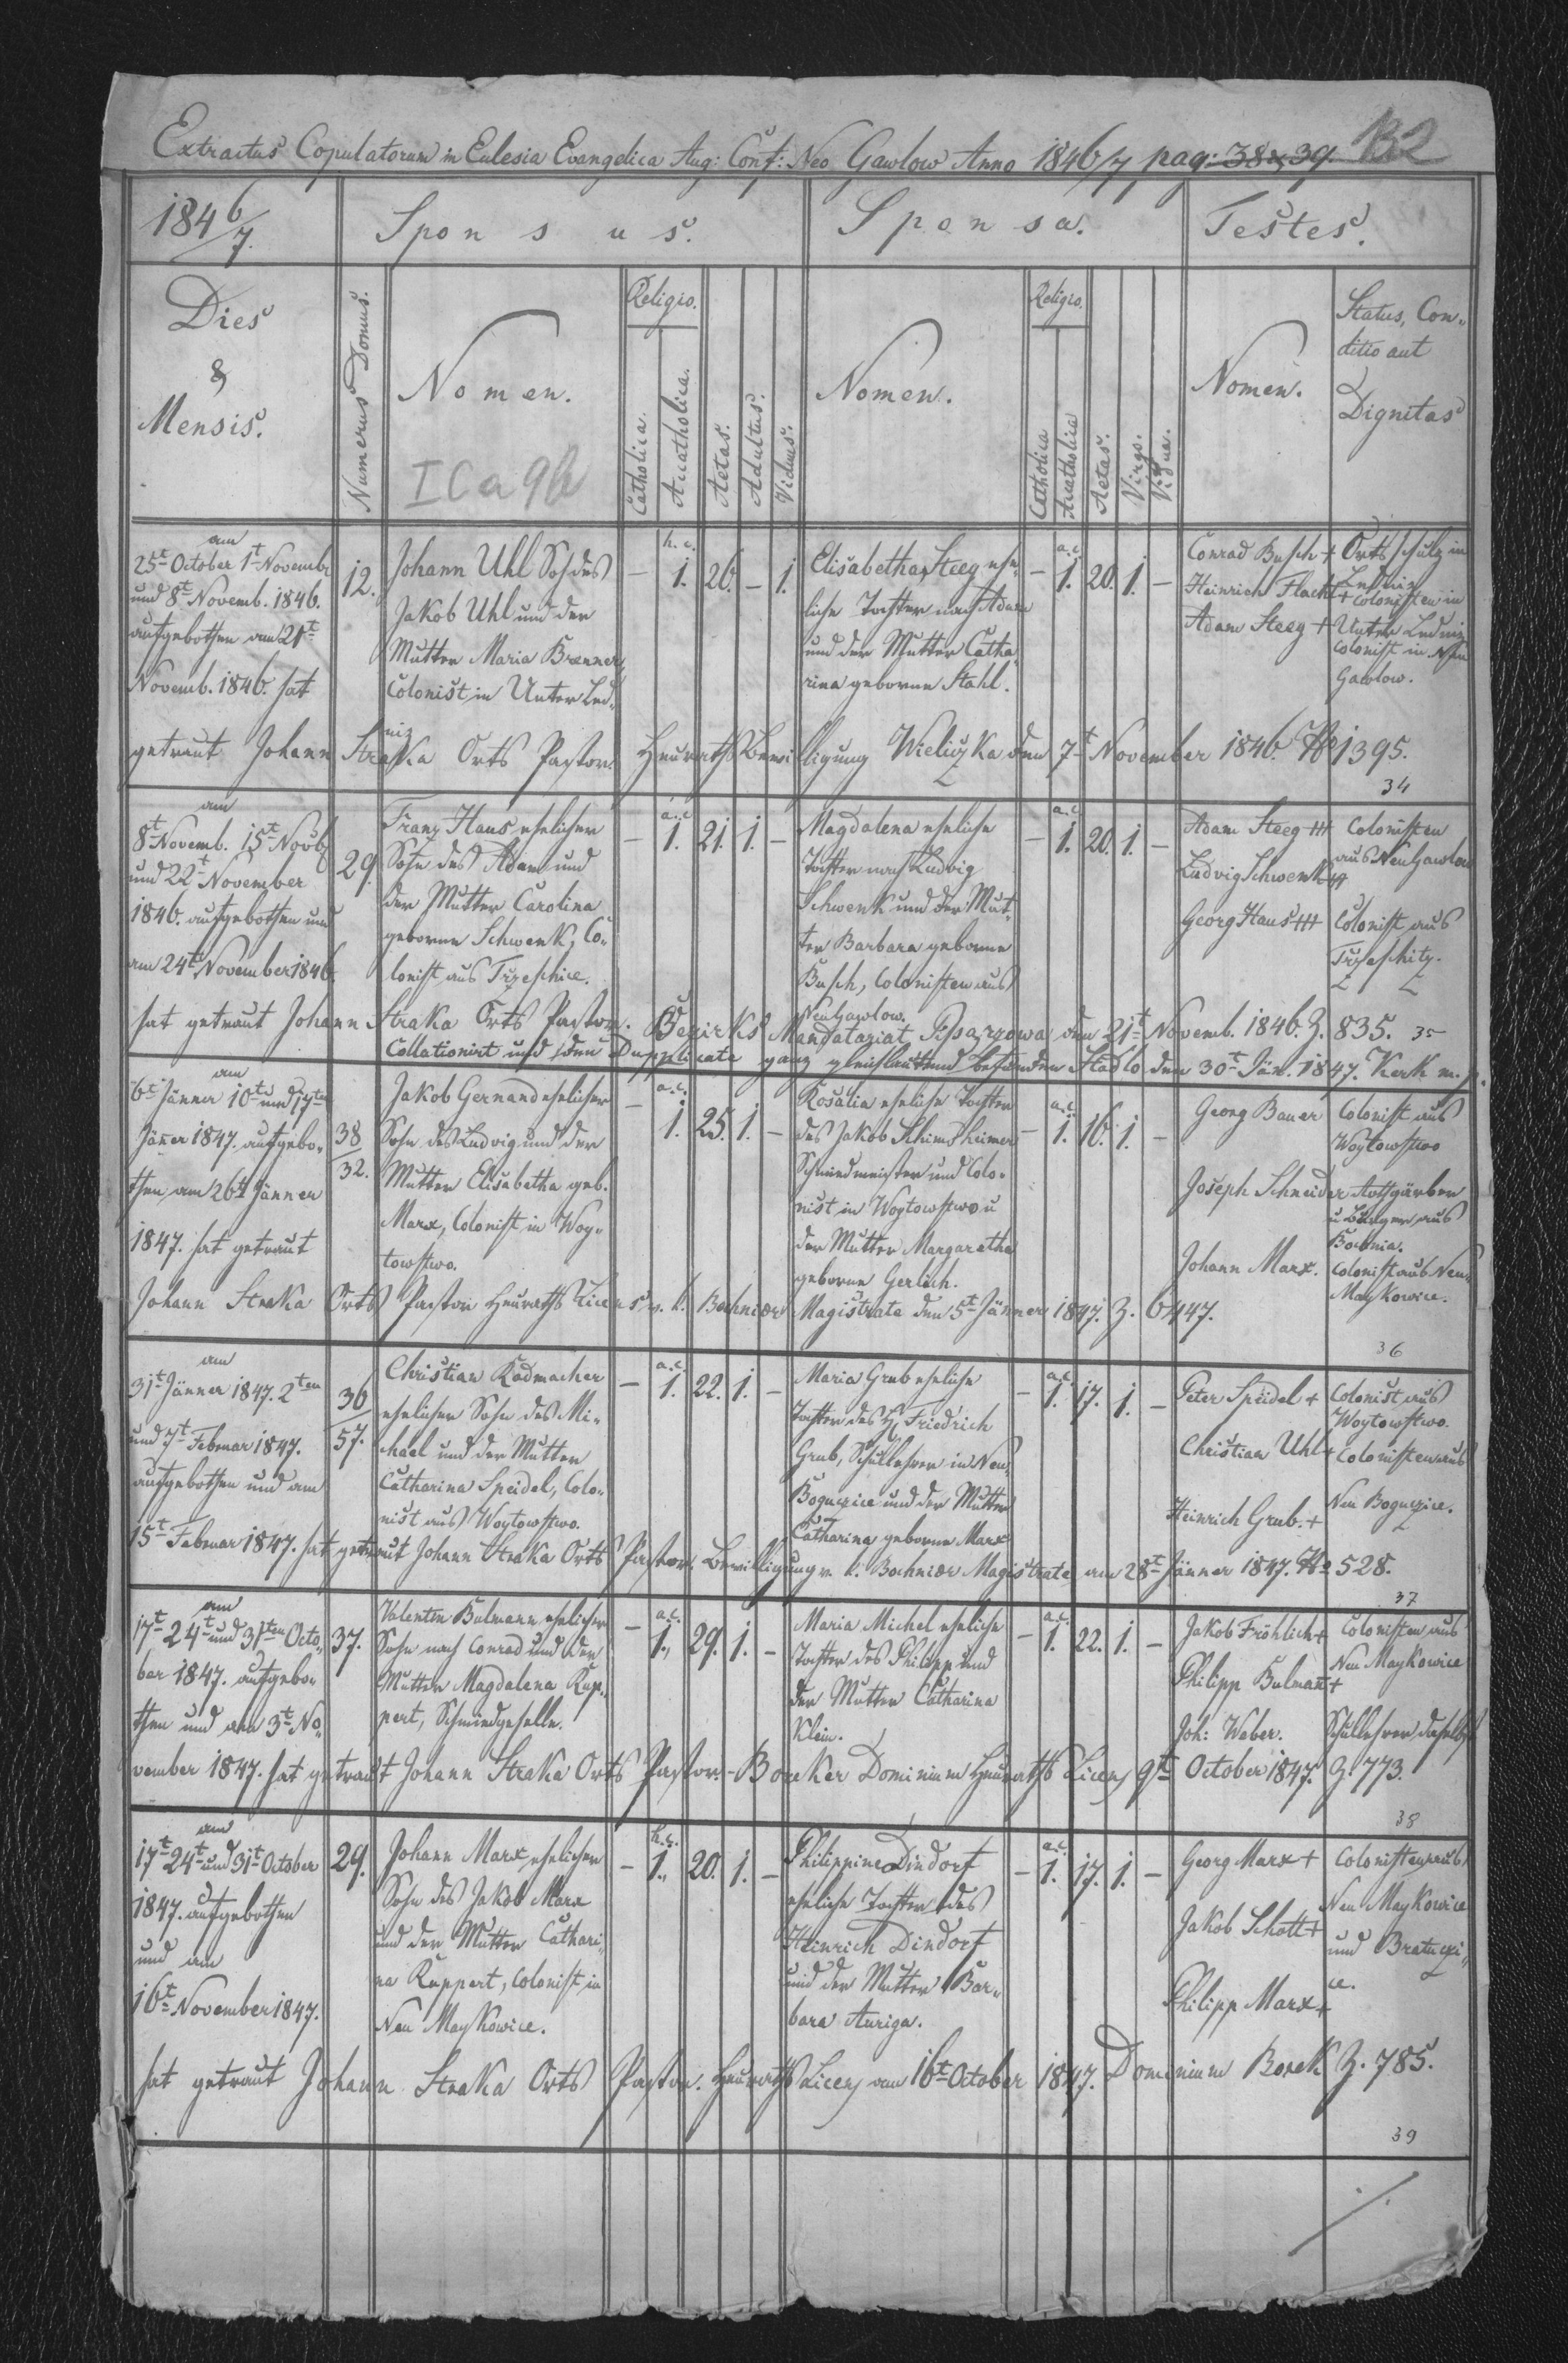 Extractus Copulatorum in Eulesia Evangelica Aug: Conf: Neo Gawlow Anno 1846/7 pag: 38 & 39. 132
1846/7.
Sponsus.
Sponsa.
Testes.
Dies
&
Mensis.
Numerus Domus.
Nomen.
ICa9b
Religio.
Catholica.
Acatholica.
Aetas.
Adultus.
Viduus.
Nomen.
Religio.
Catholica
Acatholica
Aetas.
Virgo.
Vidua.
Nomen.
Status, Con„
ditio aut
Dignitas
am
25t October 1t Novembr
und 8t Novemb. 1846.
aufgebothen am 21t
Novemb. 1846. hat
12.
Johann Uhl Soh des
Jakob Uhl und der
Mutter Maria Brenner,
Colonist in Unter Led„
niz
— h. c. 1. 26. — 1.
Elisabetha Steeg ehe„
liche Tochter nach Adam
und der Mutter Catha„
rina geborne Stahl.
— a.c. 1. 20. 1. —
Conrad Busch +
Heinrich Flach +
Adam Steeg +
Orts Schulz in
Ledniz
+ Colonisten in
Unter Ledniz
Colonist in Neu
Gawlow.
getraut Johann Straka Orts Pastor. Heuraths Bewilligung Wieliczka den 7t November 1846. No 1395.
34
am
8t Novemb. 15t Novb
und 22t November
1846. aufgebothen und
am 24t November 1846.
29.
Franz Haus ehelicher
Sohn des Adam und
der Mutter Carolina
geborne Schwenk, Co„
lonist aus Trzeschice.
— a.c. 1. 21. 1. —
Magdalena eheliche
Tochter nach Ludvig
Schwenk und der Mut„
ter Barbara geborne
Busch, Colonisten aus
Neu Gawlow.
— a.c. 1. 20. 1. —
Adam Steeg +++
Ludvig Schwenk +++
Georg Haus +++
Colonisten
aus Neu Gawlow
Colonist aus
Trzeschitz.
hat getraut Johann Straka Orts Pastor. Bezirks Mandatariat den 21t Novemb. 1846. Z. 835. 35
Collationirt und dem Dupplicate ganz gleichlautend befunden Stadlo den 30t Jän. 1847. Kerk m. p.
am
6t Jänner 10t und 17ten
Jänner 1847. aufgebo„
then, am 26t Jänner
1847. hat getraut
38
32.
Jakob Gernand ehelicher
Sohn des Ludvig und der
Mutter Elisabetha geb.
Marx, Colonist in Woy„
towstwo.
— a.c. 1. 25. 1. —
Rosalia eheliche Tochter
des Jakob Schimsheimer
Schmiedmeister und Colo„
nist in Woytowstwo u
der Mutter Margaretha
geborne Gerlich.
— a.c. 1. 16. 1. —
Georg Bauer
Joseph Schneider
Johann Marx.
Colonist aus
Woytowstwo
Rothgärber
u Bürger aus
Bochnia.
Colonist aus Neu„
Maykowice.
Johann Straka Orts Pastor Heuraths Licens v. k. Bochnier Magistrate den 5t Jänner 1847. Z. 6447.
36
am
31t Jänner 1847. 2ten
und 7t Februar 1847.
aufgebothen und am
36
57.
Christian Radmacher
ehelicher Sohn des Mi„
chael und der Mutter
Catharina Speidel, Colo„
nist aus Woytowstwo.
— a.c. 1. 22. 1. —
Maria Grub eheliche
Tochter des H. Friedrich
Grub, Schullehrer in Neu„
Boguczice und der Mutter
Catharina geborne Marx
— a.c. 1. 17. 1. —
Peter Speidel +
Christian Uhl +
Heinrich Grub. +
Colonist aus
Woytowstwo.
Colonisten aus
Neu Boguczice.
15t Februar 1847. hat getraut Johann Straka Orts Pastor. Bewilligung v. k. Bochnier Magistrate am 28t Jänner 1847. No 528.
37
am
17t 24t und 31ten Octo„
ber 1847. aufgebo„
then und am 3t No„
37.
Valentin Bulmann ehelicher
Sohn nach Conrad und der
Mutter Magdalena Rup„
pert, Schmiedgeselle.
— a.c. 1., 29. 1. —
Maria Michel eheliche
Tochter des Philipp und
der Mutter Catharina
Klein.
— a.c. 1. 22. 1. —
Jakob Fröhlich +
Philipp Bulmañ +
Joh: Weber.
Colonisten aus
Neu Maykowice
Schullehrer daselbst
vember 1847. hat getraut Johann Straka Orts Pastor. - Boreker Dominium Heuraths Licenz 9t October 1847. Z. 773.
38
am
17t 24t und 31t October
1847. aufgebothen
und am
16t November 1847.
29.
Johann Marx, ehelicher
Sohn des Jakob Marx
und der Mutter Cathari„
na Ruppert, Colonist in
Neu Maykowice.
— h. c. 1., 20. 1. —
Philippine Dindorf
eheliche Tochter des
Heinrich Dindorf
und der Mutter Bar„
bara Auriga.
— a.c. 1. 17. 1. —
Georg Marx +
Jakob Schott +
Philipp Marx +
Colonisten aus
Neu Maykowice
und Bratuczi„
ce.
hat getraut Johann Straka Orts Pastor. Heuraths Licenz am 16t October 1847. Dominium Borek Z. 785.
39